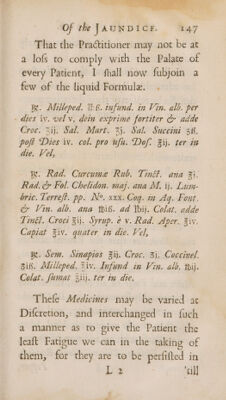 Of the JAUNDICE. 147
That the Practitioner may not be at
a loſs to comply with the Palate of
every Patient, I ſhall now ſubjoin
a few of the liquid Formulæ.
℞. Milleped. ℔ß. infund. in Vin. alb. per
dies iv. vel v. dein exprime fortiter & adde
Croc. ʒij. Sal. Mart. ʒj. Sal. Succini ʒiß.
poſt Dies iv. col. pro uſu. Doſ. ℥ij. ter in
die. Vel,
℞. Rad. Curcumæ Rub. Tinct. ana ℥j.
Rad. & Fol. Chelidon. maj. ana M. ij. Lum-
bric. Terreſt. pp. Nº. xxx. Coq. in Aq. Font.
& Vin. alb. ana ℔iß. ad ℔ij. Colat. adde
Tinct. Croci ℥ij. Syrup. è v. Rad. Aper. ℥iv.
Capiat ℥iv. quater in die. Vel,
℞. Sem. Sinapios ℥ij. Croc. ʒj. Coccinel.
ʒiß. Milleped. ℥iv. Infund in Vin. alb. ℔ij.
Colat. ſumat ℥iij. ter in die.
Theſe Medicines may be varied at
Diſcretion, and interchanged in ſuch
a manner as to give the Patient the
leaſt Fatigue we can in the taking of
them, for they are to be perſiſted in
L 2 'till